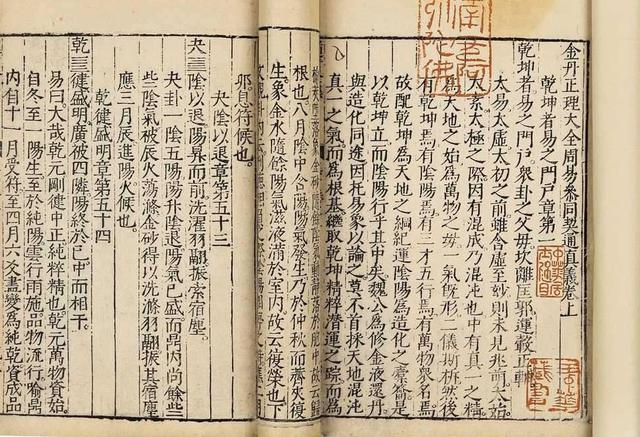 金丹正理大全周易參同契通真義卷上
乾坤者易之門戶章第一
乾坤者易之門戶眾卦之父母坎離匡郭運轂正軸
太易太虛太初之前雖含虛至妙則未見兆萌太始
太素太極之際因有混成乃混沌也中有真一之精
為天地之始為萬物之母一氣既形二儀斯析然後
有乾坤焉有陰陽焉有三才五行焉有萬物眾名焉
故配乾坤為天地之綱紀運陰陽為造化之橐籥是
以乾坤立而陰陽行乎其中矣魏公為修金液還丹
與造化同途因托易象以論之莫不首採天地混沌
真一之氣而為根基繼取乾坤精粹潛運之蹤而為
落於胞中故云歸
根也八月陰中含陽陽氣發生乃於仲秋而薺麥復
生象金水隨餘陽氣滋液滿於室內故云復榮也下
邪息符候也
夬陰以退章第五十三
夬䷪陰以退陽昇而前洗濯羽翮振索宿塵
夬卦一陰五陽陽升陰退陽氣已盛而鼎內尚餘些
些陰氣被辰火蕩滌金砂得以洗滌羽翮振其宿塵
應三月辰進陽火候也
乾健盛明章第五十四
乾䷀健盛明廣被四隣陽終於巳中而相干
易曰大哉乾元剛健中正純粹精也乾元萬物資始
自冬至一陽生至於純陽雲行雨施品物流行喻鼎
內自十一月受符至四月六爻晝變為純乾資成品
南無阿
弥陀佛